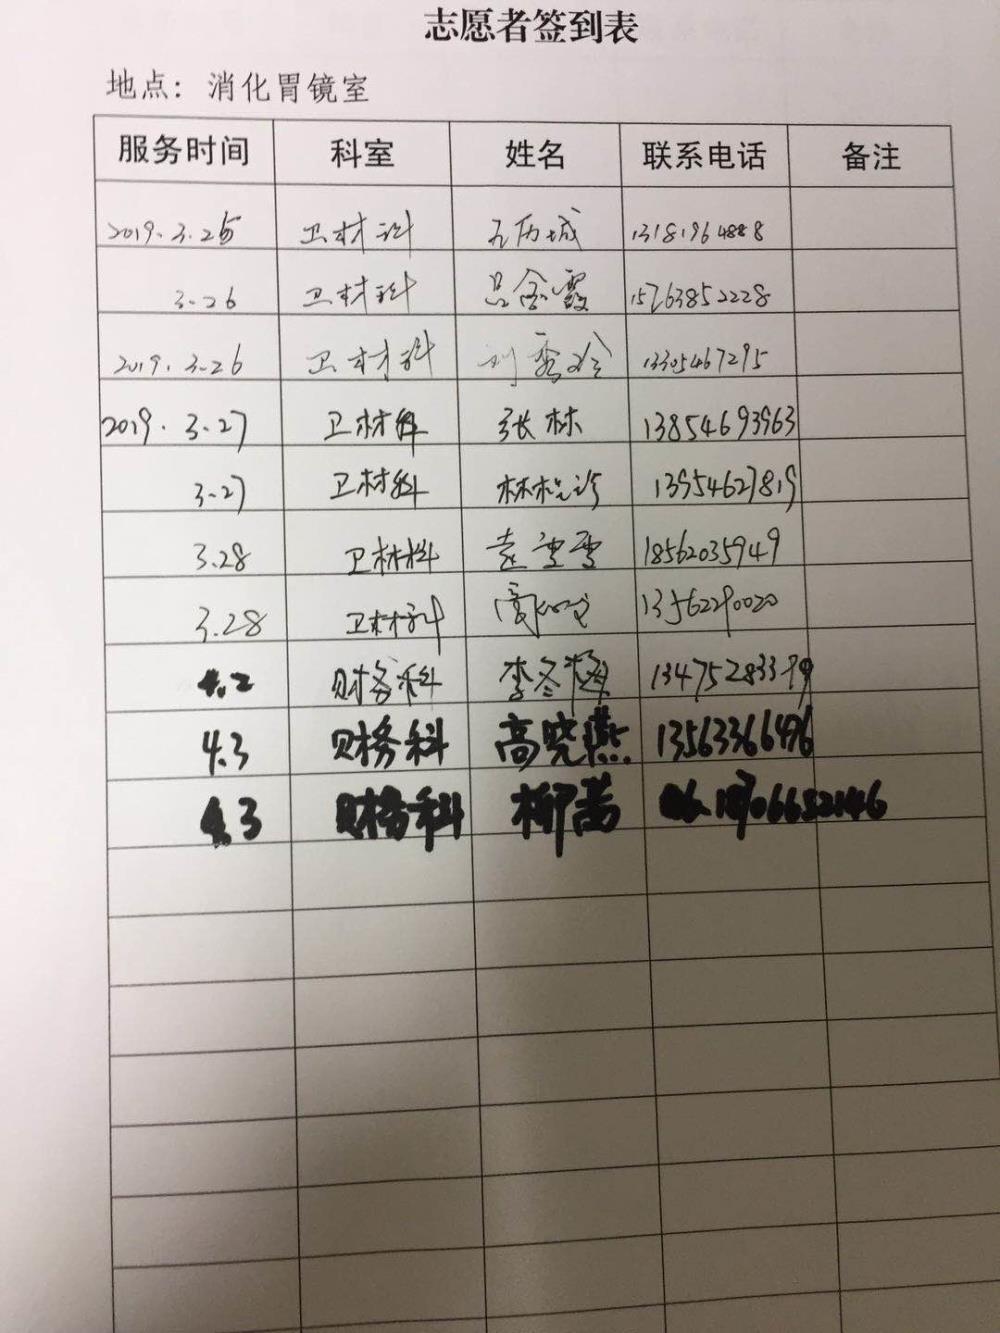 志愿者签到表
地点：消化胃镜室
服务时间 科室 姓名 联系电话 备注
2019.3.25 卫材科 13181964888
3.26 卫材科 吕金霞 15763852228
2019.3.26 卫材科 13305467295
2019.3.27 卫材科 张林 13854693963
3.27 卫材科 13954627819
3.28 卫材科 袁雪雪 18562035949
3.28 卫材科 13562290020
4.2 财务科 李冬梅
4.3 财务科 高晓燕 13563366496
4.3 财务科 柳茜